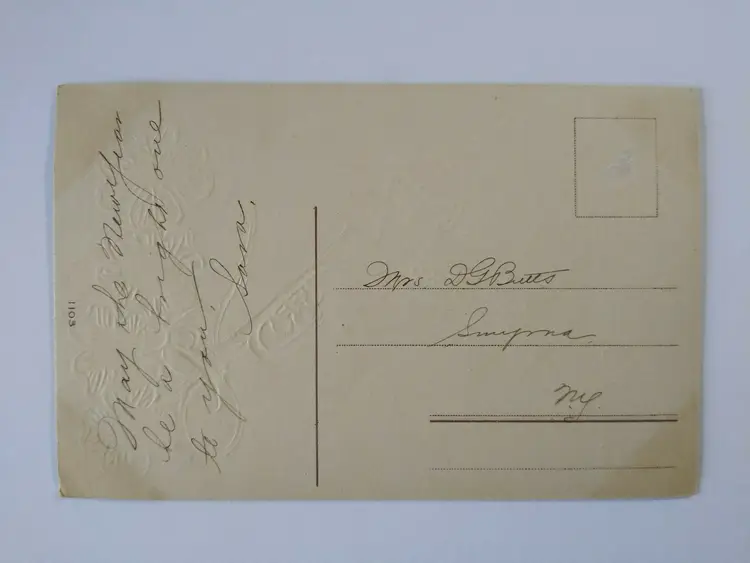 May the New Year
be a bright one
to you.
Sara.
1103
Mrs. D G Butts
Smyrna
N.Y.